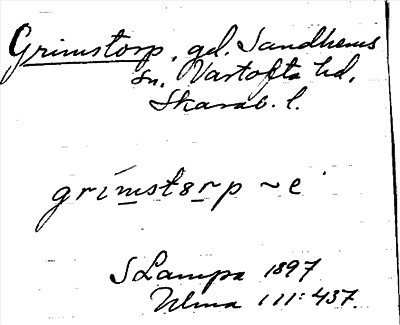 Grimstorp, gd. Sandhems
sn, Vartofta hd,
Skarab. l.
grimstorp ~ e
S Lampa 1897
Ulma 111:437.